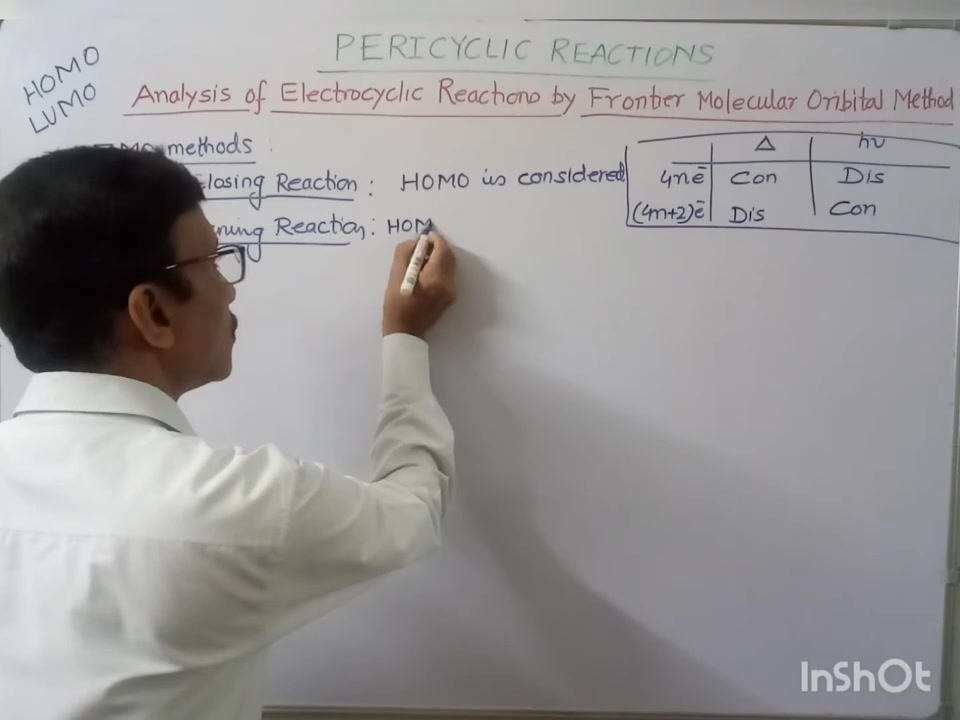 PERICYCLIC REACTIONS
HOMO
LUMO
Analysis of Electrocyclic Reactions by Frontier Molecular Oribital Method
methods :
losing Reaction : HOMO is considered
ning Reaction : HOM
Δ hν
4nē Con Dis
(4n+2)ē Dis Con
InShOt